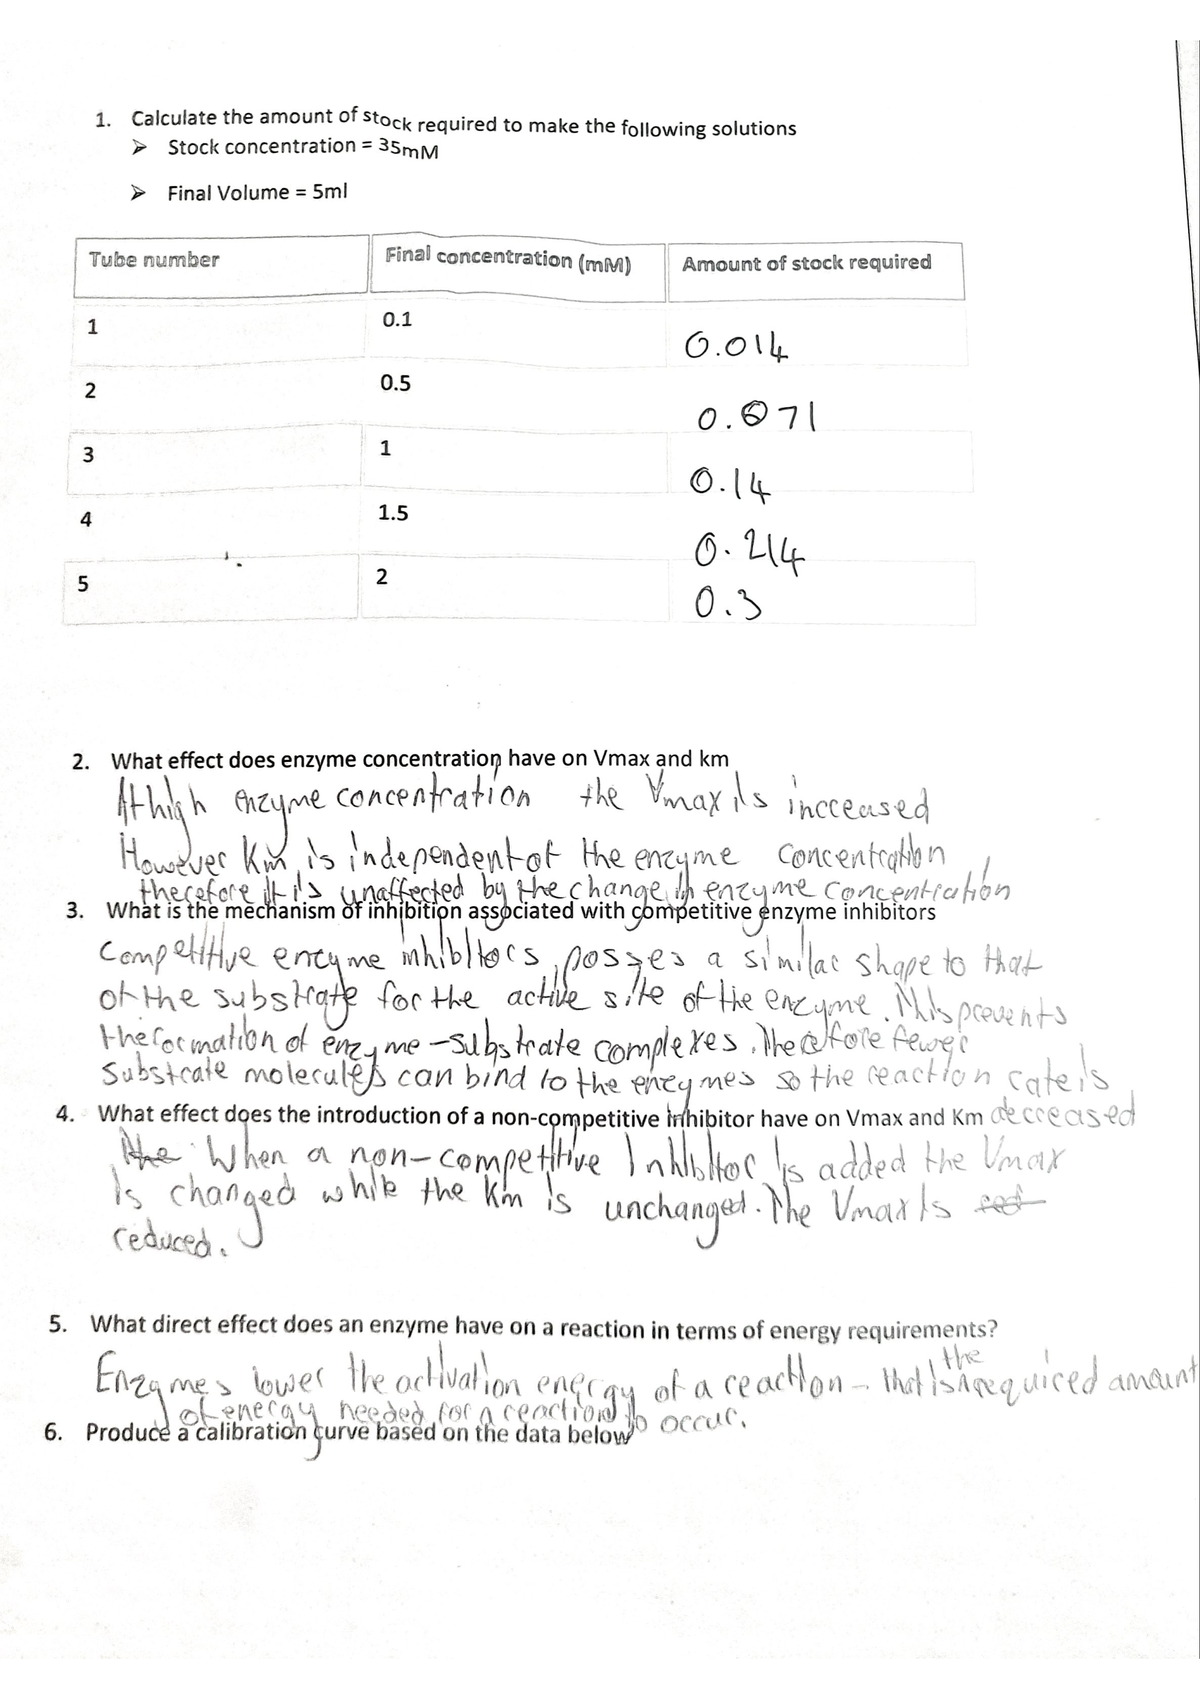 1. Calculate the amount of stock required to make the following solutions
➢ Stock concentration = 35mM
➢ Final Volume = 5ml
Tube number Final concentration (mM) Amount of stock required
1 0.1 0.014
2 0.5 0.071
3 1 0.14
4 1.5 0.214
5 2 0.3
2. What effect does enzyme concentration have on Vmax and km
At high enzyme concentration the Vmax is increased
However Km is independent of the enzyme concentration,
therefore it is unaffected by the change in enzyme concentration
3. What is the mechanism of inhibition associated with competitive enzyme inhibitors
Competitive enzyme inhibitors posses a similar shape to that
of the substrate for the active site of the enzyme. This prevents
the formation of enzyme-substrate complexes. Therefore fewer
Substrate molecules can bind to the enzymes so the reaction rate is
decreased
4. What effect does the introduction of a non-competitive inhibitor have on Vmax and Km
The When a non-competitive Inhibitor is added the Vmax
is changed while the Km is unchanged. The Vmax is red
reduced.
5. What direct effect does an enzyme have on a reaction in terms of energy requirements?
Enzymes lower the activation energy of a reaction - that is the required amount
of energy needed for a reaction to occur.
6. Produce a calibration curve based on the data below